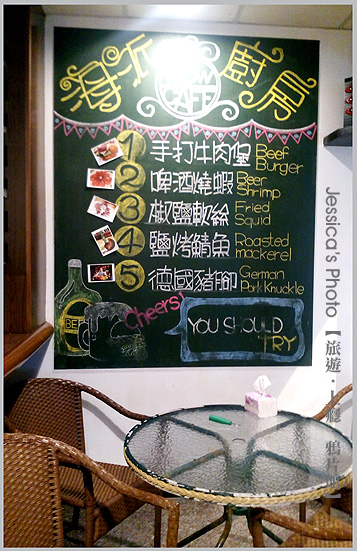 海派 廚房
CAFE
1 手打牛肉堡 Beef Burger
2 啤酒燒蝦 Beer Shrimp
3 椒鹽軟絲 Fried Squid
4 鹽烤鯖魚 Roasted mackerel
5 德國豬腳 German Pork Knuckle
BEER
Cheers!
YOU SHOULD
TRY
Jessica's Photo【旅遊.